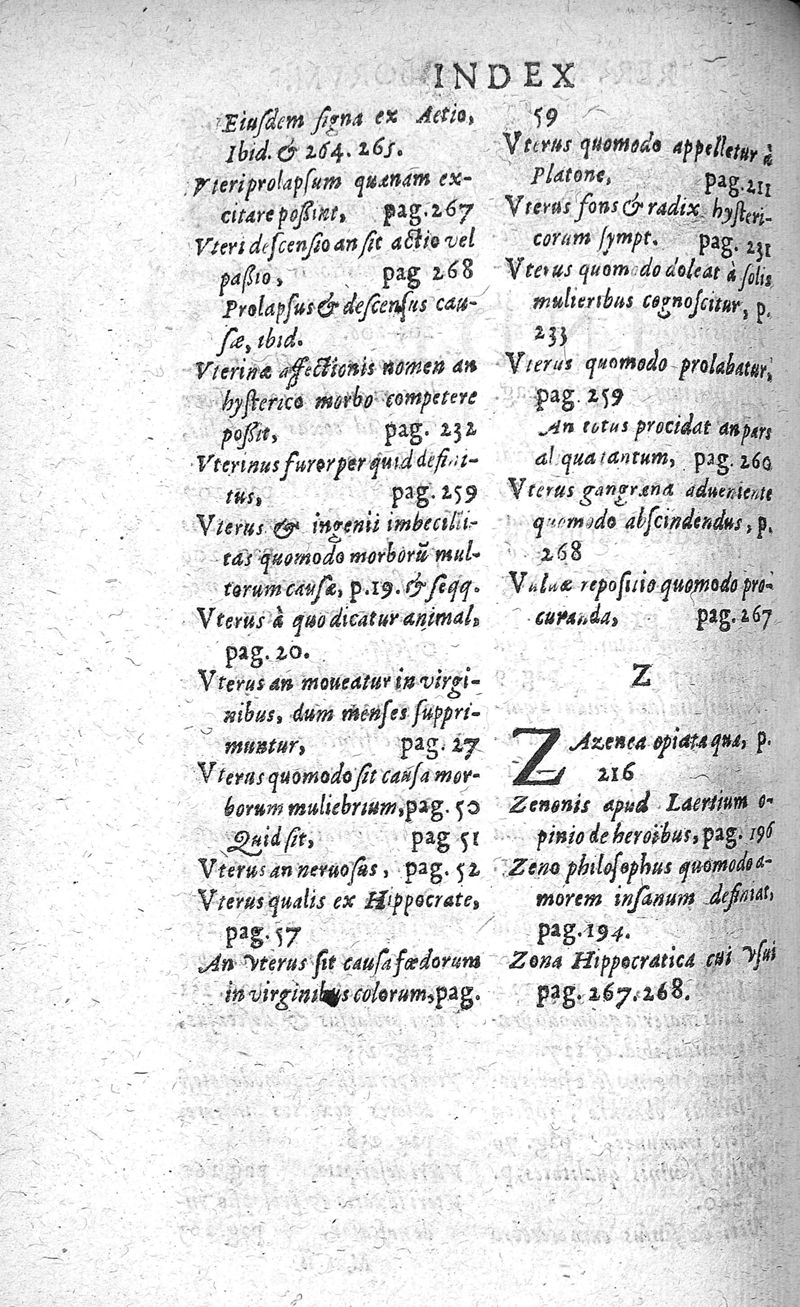 INDEX
Eiuſdem ſigna ex Aetio,
Ibid. & 264. 265.
Vteri prolapſum quænam ex-
citare poßint, pag. 267
Vteri deſcenſio an ſit actio vel
paßio, pag 268
Prolapſus & deſcenſus cau-
ſæ, ibid.
Vterinæ affectionis nomen an
hyſterico morbo competere
poßit, pag. 232
Vterinus furor per quid defini-
tus, pag. 259
Vterus & ingenii imbecilli-
tas quomodo morborũ mul-
torum cauſæ, p. 19. & ſeqq.
Vterus à quo dicatur animal,
pag. 20.
Vterus an moueatur in virgi-
nibus, dum menſes ſuppri-
muntur, pag. 27
Vterus quomodo ſit cauſa mor-
borum muliebrium, pag. 50
Quid ſit, pag 51
Vterus an neruoſus, pag. 52
Vterus qualis ex Hippocrate,
pag. 57
An vterus ſit cauſa fœdorum
in virginibus colorum, pag.
59
Vterus quomodo appelletur à
Platone, pag. 211
Vterus fons & radix hyſteri-
corum ſympt. pag. 231
Vterus quomodo doleat à ſolis
mulieribus cognoſcitur, p.
233
Vterus quomodo prolabatur,
pag. 259
An totus procidat an pars
aliqua tantum, pag. 260
Vterus gangræna adueniente
quomodo abſcindendus, p.
268
Vuluæ repoſitio quomodo pro-
curanda, pag. 267
Z
ZAzenea opiata qua, p.
216
Zenonis apud Laertium o-
pinio de heroïbus, pag. 196
Zeno philoſophus quomodo a-
morem inſanum definiat,
pag. 194.
Zona Hippocratica cui vſui
pag. 267. 268.